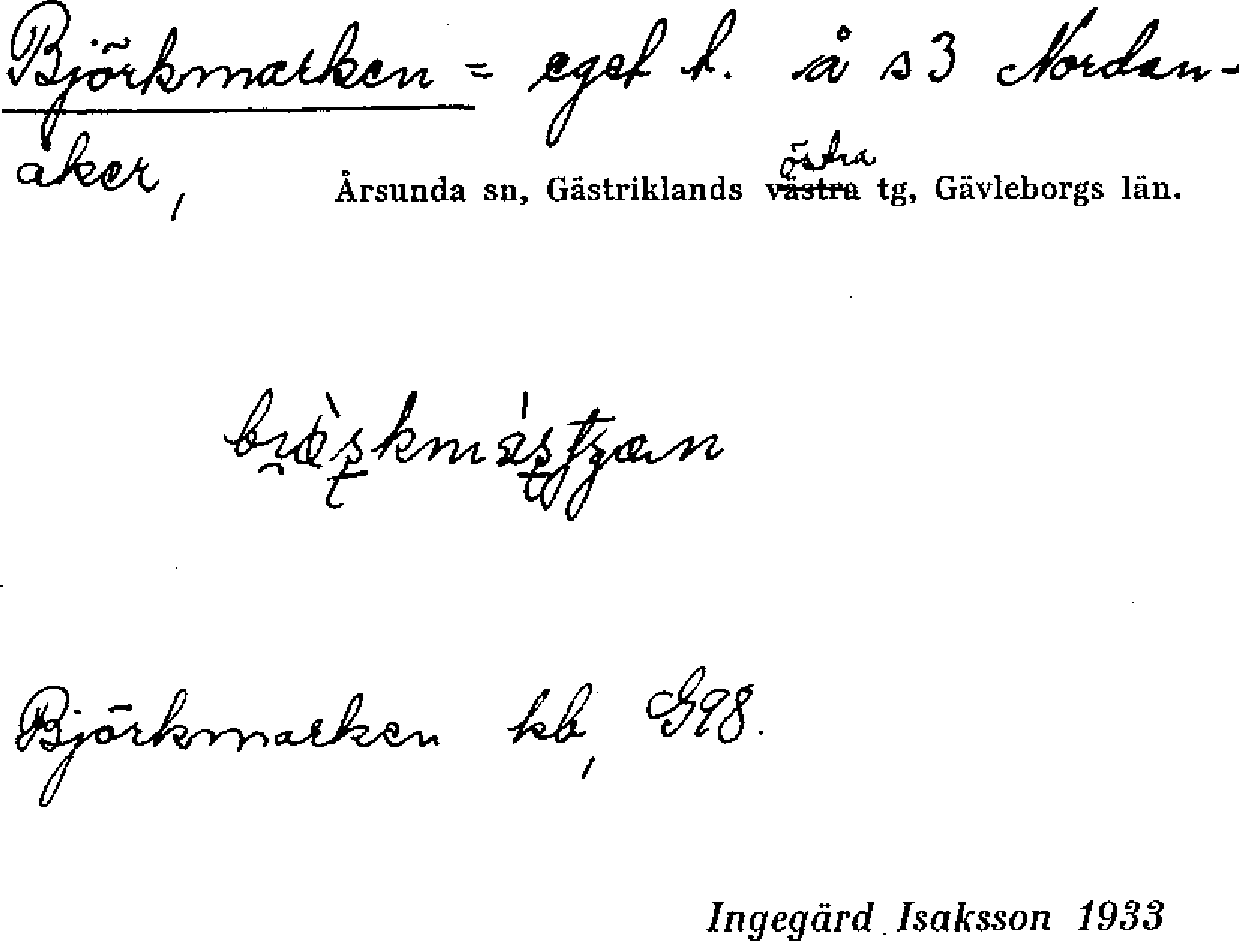 Björkmarken = eget t. å s3 Nordan-
åker,
Årsunda sn, Gästriklands västra östra tg, Gävleborgs län.
Björkmarken kb, G98.
Ingegärd Isaksson 1933